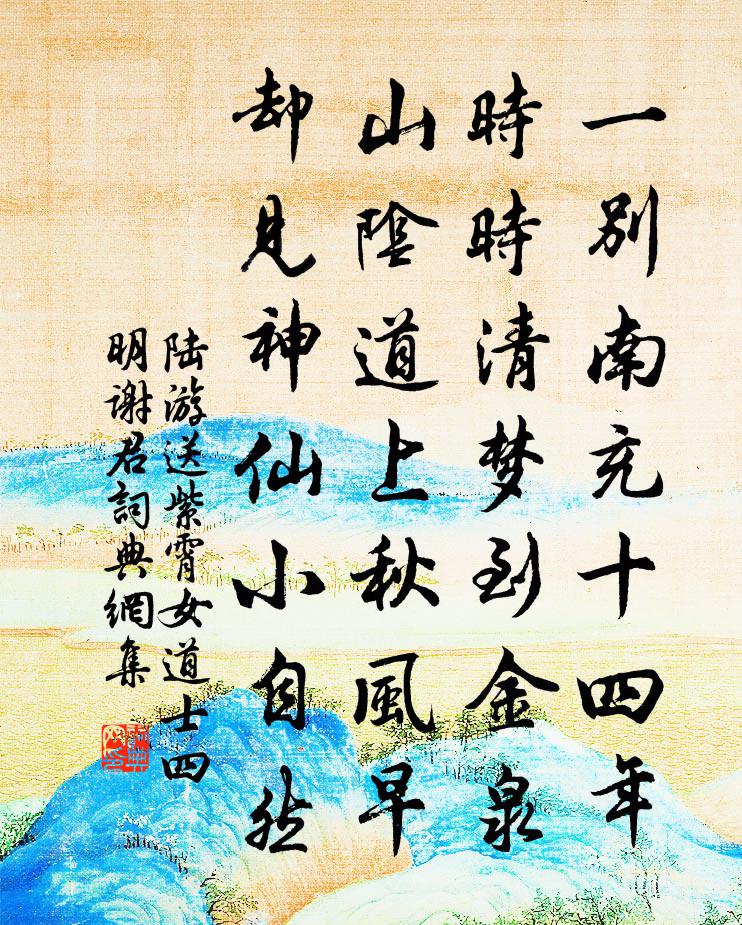 一别南充十四年
時時清梦到金泉
山陰道上秋風早
却見神仙小自然
陆游送紫霄女道士四
明謝君詞典網集